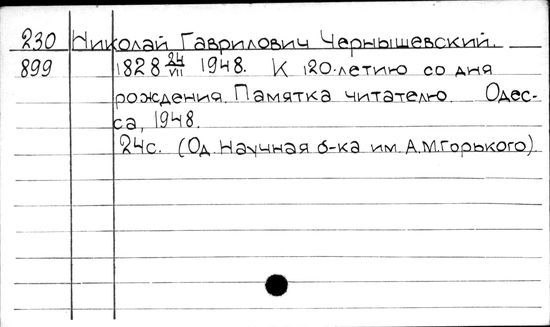 230 Николай Гаврилович Чернышевский.
899 1828 24/VII 1948. К 120-летию со дня
рождения. Памятка читателю. Одес-
са, 1948.
24с. (Од. Научная б-ка им. А.М.Горького).